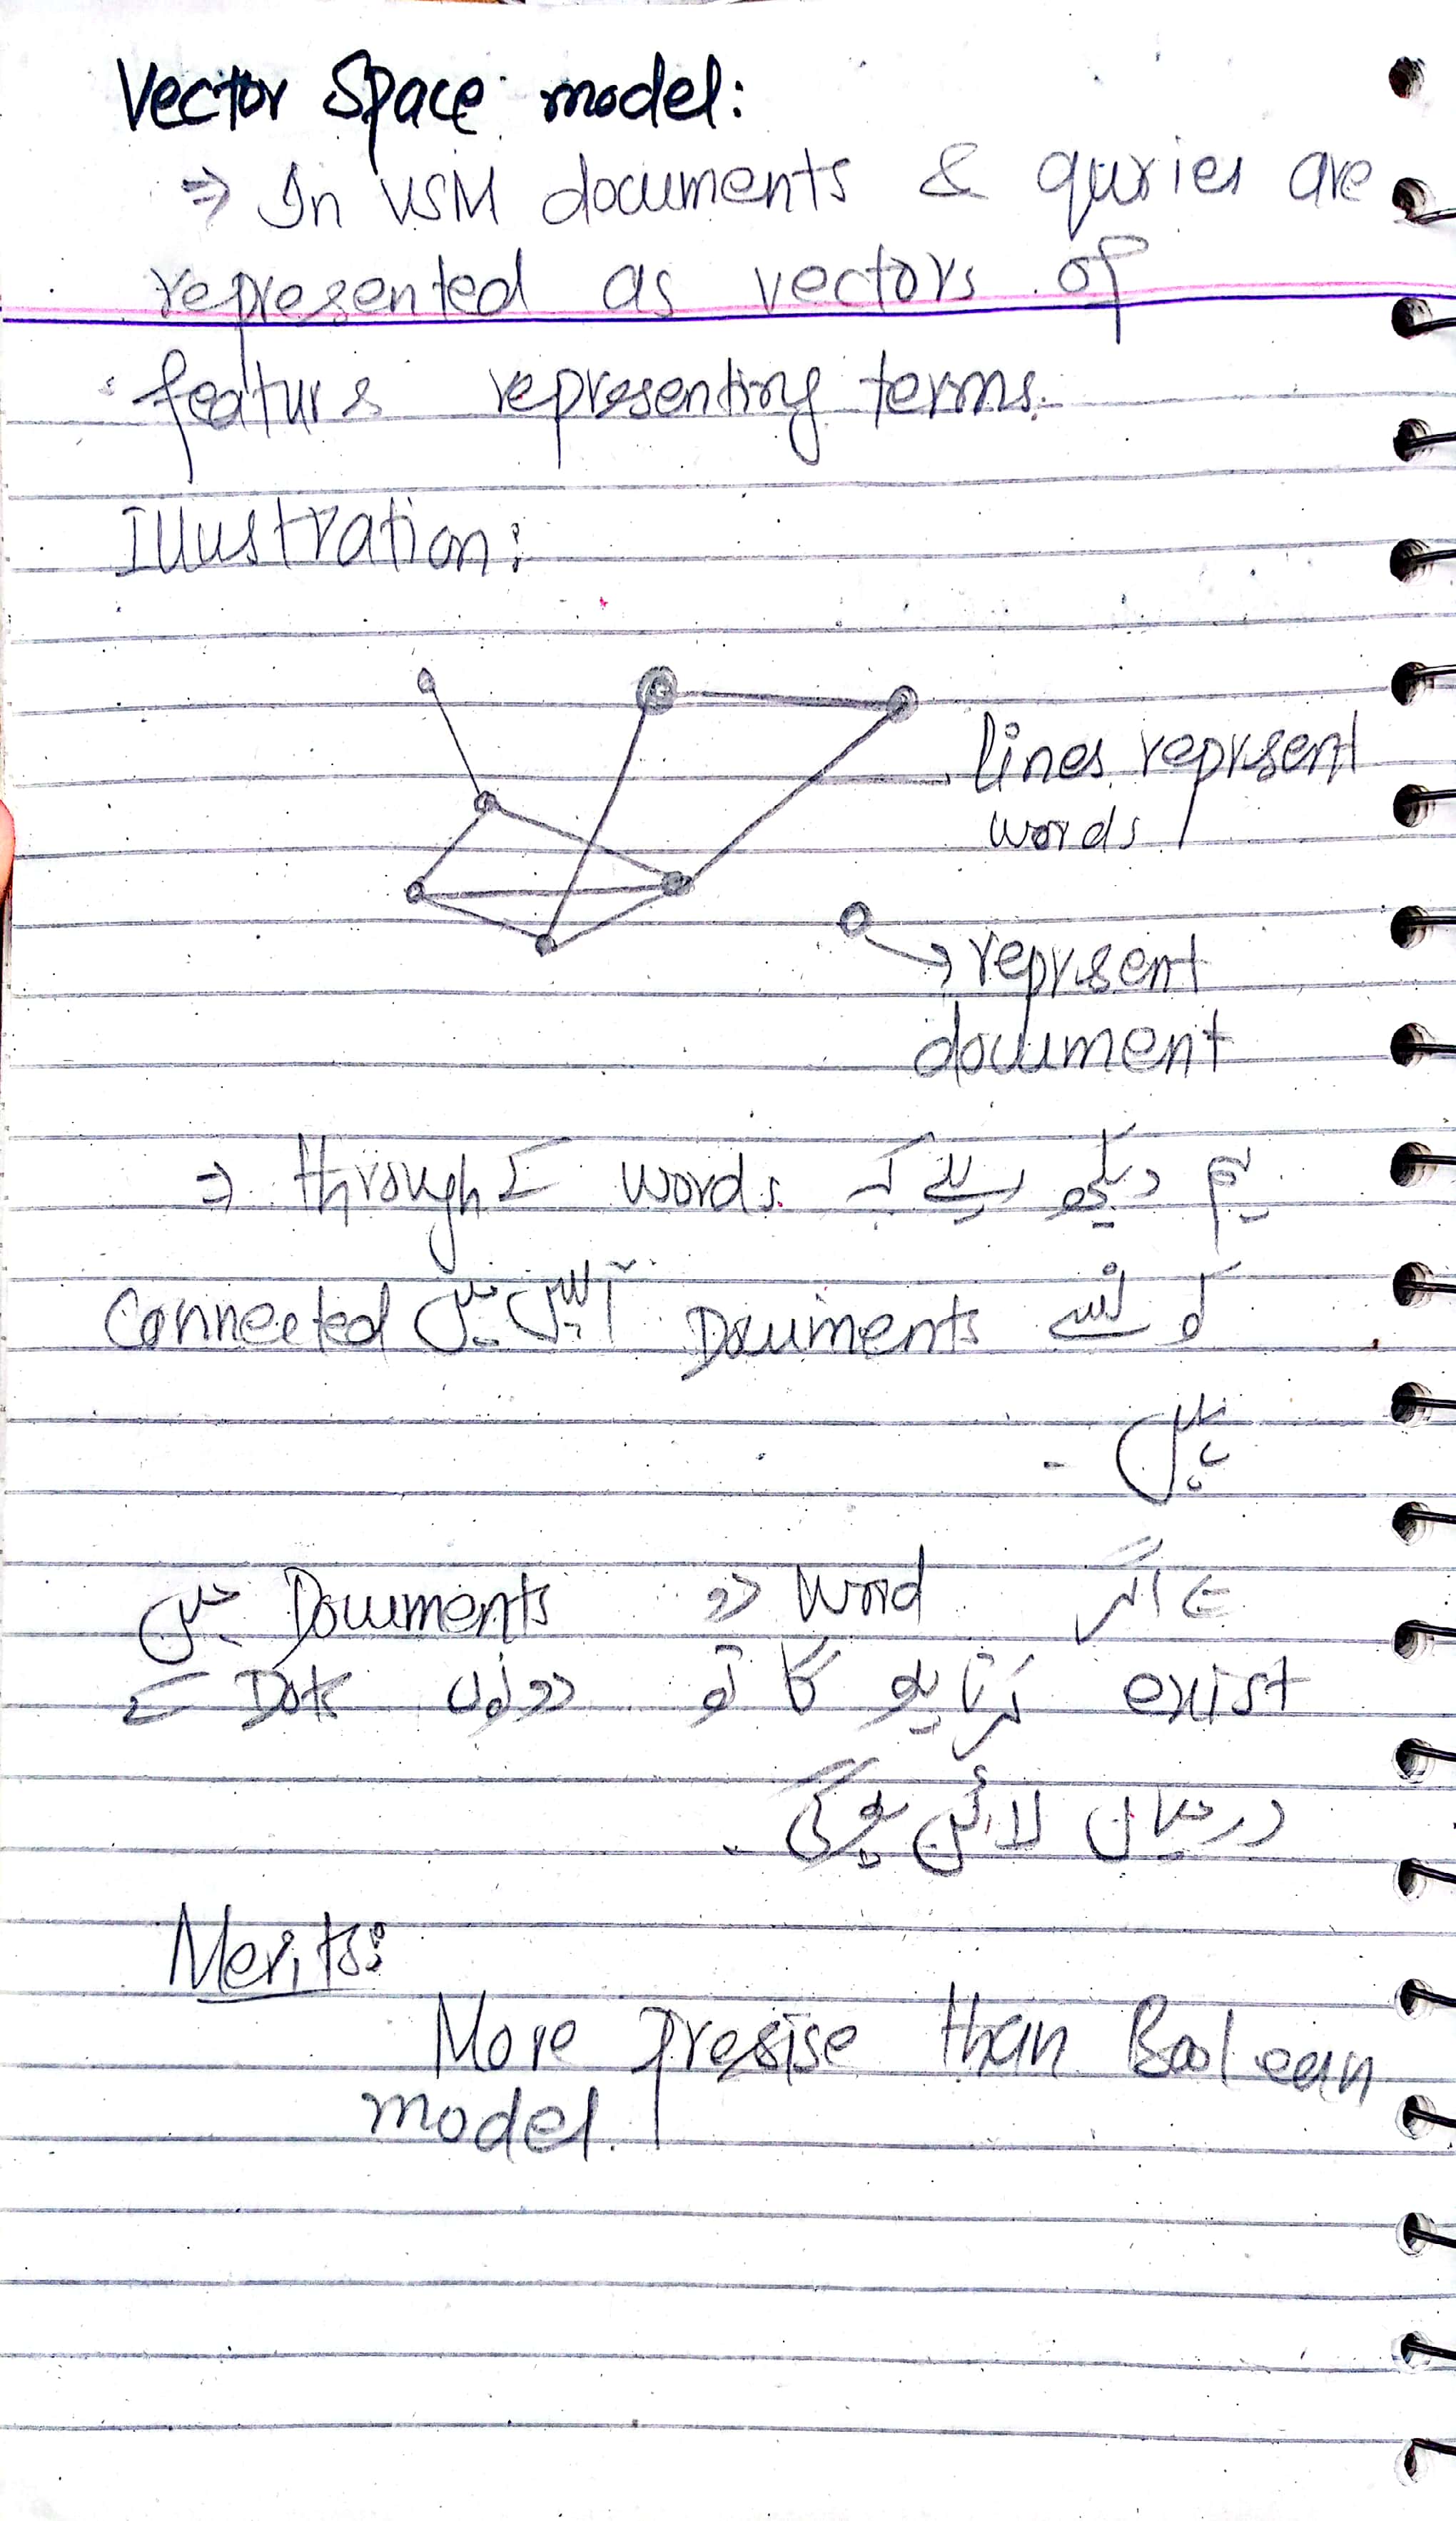 Vector Space model:
⇒ In VSM documents & quries are
represented as vectors of
featurs representing terms.
Illustration:
lines represent
words
→ represent
document
⇒ ہم دیکھ رہے کہ words کے through
کونسے Documents آپس میں Connected
ہیں۔
⇒ اگر Word دو Documents میں
exist کرتا ہو گا تو دونوں Dots کے
درمیان لائن ہوگی۔
Merits:
More presise than Boolean
model.